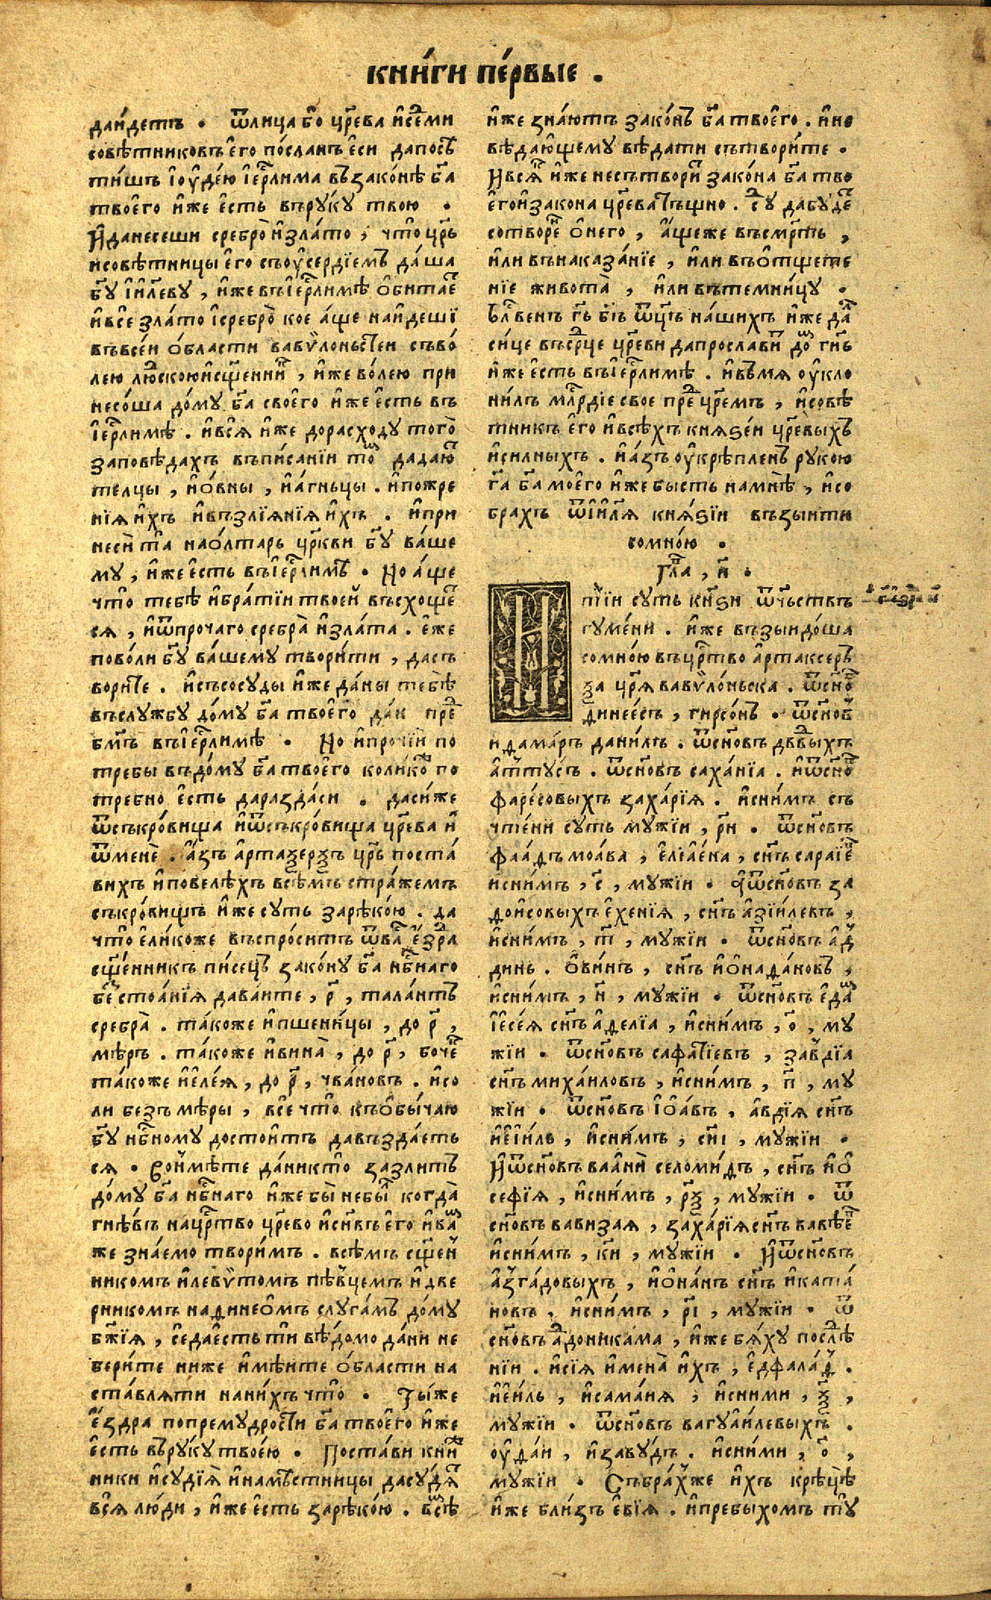 кни́ги пе́рвые .
да́идетъ . ѿлица бо цр҃ева и҆ семи
совѣтниковъ его по́сланъ еси дапосѣ
тишъ Іѹде́ю Іер҃лима възако́нѣ бг҃а
твоего и҆же е҆сть въруку твою .
И҆ данесеши сребро̀ и҆зла́то , что̀ цр҃ь
исовѣтницы его съоу҆се́рдїемъ да́ша
бг҃у І҆и҃леву , и҆же въІер҃лимѣ ѻ҆битае
и҆все зла́то і҆сребро̀ кое а҆ще на́идешї
въвсе́и ѻ҆бласти вавѷлоньстеи съво́
лею люд҇скоюи҆сщ҃енни҇ , и҆же во́лею при
несо́ша до́му бг҃а своего и҆же е҆сть въ
І҆ер҃лимѣ . и҆вся и҆же дорасходу того̀
за́повѣдахъ въписа́нїи то҇ дадаю
телцы , и҆ѻ҆вны , и҆а҆гньцы . и҆пожре
нїя и҆хъ и҆възлїянїя и҆хъ . и҆при
неси̂ та̀ наѻ҆лта́рь цр҃кви бг҃у ва́ше
му , и҆же е҆сть въІер҃лимѣ . Но а҆ще
что̀ тебѣ и҆бра́тїи твоей въсхоще
ся , и҆ѿпрочаго сребра̀ и҆зла́та . е҆же
пово́ли бг҃у ва́шему твори́ти , дасъ
вори́те . и҆съсосуды и҆же да́ны тебѣ
въслу́жбу до́му бг҃а твоего да́и пре҇
бг҃мъ въІер҃лимѣ . Но и҆про́чїи по
требы въдо́му бг҃а твоего коли́ко по
требно е҆сть дараздаси . дасиже
ѿсъкро́вища и҆ѿсъкро́вища цр҃ева и҆
ѿменѐ . а҆зъ а҆ртаѯерѯъ цр҃ь поста́
вихъ и҆повелѣхъ всѣмъ стра́жемъ
съкро́вищъ и҆же су́ть зарѣко́ю . да
что̀ е҆ли́коже въспро́ситъ ѿва҇ е҆здра
сщ҃енникъ пи́сецъ зако́ну бг҃а нб҃наго
бес̾стоа́нїя дава́ите , р҃ , тала́нтъ
сребра̀ . та́коже и҆пшени́цы , до р҃ ,
мѣръ . та́коже и҆вина̀ , до р҃ , боче҇
та́коже и҆е҆ле́я , до р҃ , чва́новъ . и҆со
ли безъ мѣры , все что̀ къѻ҆бы́чаю
бг҃у нб҃ному досто́итъ давъздаетъ
ся . Воньмѣте да́никто̀ зазлитъ
до́му бг҃а нб҃наго и҆же бы̀ небы҇ когда̀
гнѣвъ нацр҃тво цр҃ево и҆сн҃въ его и҆ва҇
же зна́емо твори́мъ . всѣмъ сщ҃ен
никомъ и҆левѵтомъ пѣвцемъ и҆две
рникомъ надинео́мъ слуга́мъ до́му
бж҃їя , седае́сть ти вѣ́домо да́ни не
бери́те ниже и҆мѣите ѻ҆бласти на
ста́вляти нани́хъ что̀ . Ты́же
е҆здра попремудрости бг҃а твоего и҆же
е҆сть въруку твое́ю . Поста́ви кни҇
ники и҆судїя̀ и҆намѣстницы дасу́дя
вся лю́ди , и҆же е҆сть зарѣко́ю . всѣ
и҆же зна́ютъ зако́нъ бг҃а твоего . и҆не
вѣдающему вѣдати сътвори́те .
И҆вся҇ и҆же несътвори҇ зако́на бг҃а тво
егои҆зако́на цр҃ева тъщно . су҇ дабуде
сотворе҇ ѻ҆него , а҆щеже въсмр҃ть ,
и҆ли внаказа́нїе , и҆ли въѻ҆тщете
нїе живота̀ , и҆ли втемни́цу .
Бл҃венъ гь҃ бг҃ъ ѿц҃ъ на́шихъ и҆же да҇
си́це въср҃це цр҃еви дапрослави҇ до҇ гн҃ь
и҆же е҆сть въІер҃лимѣ . и҆вомя оу҆кло
ни́лъ млр҃дїе свое пре҇ цр҃емъ , и҆совѣ
тникъ его и҆всѣхъ князе́и цр҃евыхъ
и҆си́лныхъ . и҆а҆зъ оу҆крѣпленъ руко́ю
гд҃а бг҃а моего и҆же бы́сть намнѣ , и҆со
брахъ ѿі҆и҃ля князїи възы́ити
сомно́ю .
гла҇ , и҃ .
тїи су́ть кн҃зи ѿч҃ьствъ
гумени . и҆же възыидо́ша
сомно́ю въцр҃тво а҆ртаксерѣ
ѯа цр҃я вавѷло́ньска . ѿсно҇
динее́съ , гирсо́нъ . ѿсно҇в
и дама́ръ дани́лъ . ѿсн҃овъ дв҃выхъ
а҆ттусъ . ѿсн҃овъ саха́нїа . и҆ѿсн҃о
фаре́совыхъ заха́рїя . и҆сни́мъ съ
чте́ни су́ть му́жїи , р҃н . ѿсн҃овъ
фаадъ моа́ва , е҆лїае́на , сн҃ъ сараїе
и҆сни́мъ , с҃ , му́жїи . и҆ѿсн҃овъ за
до́исовыхъ е҆хе́нїя , сн҃ъ а҆зїи́левъ ,
и҆сни́мъ , т҃ , му́жїи . ѿсн҃овъ а҆д
дине . ѻ҆ви́нъ , сн҃ъ и҆ѻ҆нада́новъ ,
и҆сни́мъ , н҃ , му́жїи . ѿсн҃овъ е҆да҇
І҆е҆се́я сн҃ъ а҆дели́а , и҆сни́мъ , о҃ , му
жїи . ѿсн҃овъ сафатїевъ , завдїа
сн҃ъ миха́иловъ , и҆сни́мъ , п҃ , му
жїи . ѿсн҃овъ І҆ѻ҆а́въ , а҆вдїя сн҃ъ
и҆еїиль , и҆сни́мъ , сн҃ı , му́жїи .
И҆ѿсн҃овъ ваани̂ селоми́дъ , сн҃ъ и҆ѻ҆
сефїя , и҆сни́мъ , рѯ҃ , му́жїи . ѿ
сн҃овъ вавизая , заха́рїясн҃ъ вавѣе҇
и҆сни́мъ , кн҃ , му́жїи . И҆ѿсн҃овъ
а҆зга́довыхъ , и҆ѻ҆на́нъ сн҃ъ и҆ката́
новъ . и҆сни́мъ , рı҃ , му́жїи . ѿ
сн҃овъ а҆доника́ма , и҆же бя́ху послѣ
нїи . и҆сїя и҆мена̀ и҆хъ , е҆дфала́д .
и҆е҆и́ль , и҆сама́ня , и҆сними , ѯ҃ ,
му́жїи . ѿсн҃овъ вагуа́илевыхъ .
оу҆да́и , и҆заву́дъ . и҆сни́ми , о҃ ,
му́жїи . Събра́хже и҆хъ крѣцѣ
и҆же бли́зъ е҆ві́я . и҆пребы́хомъ ту